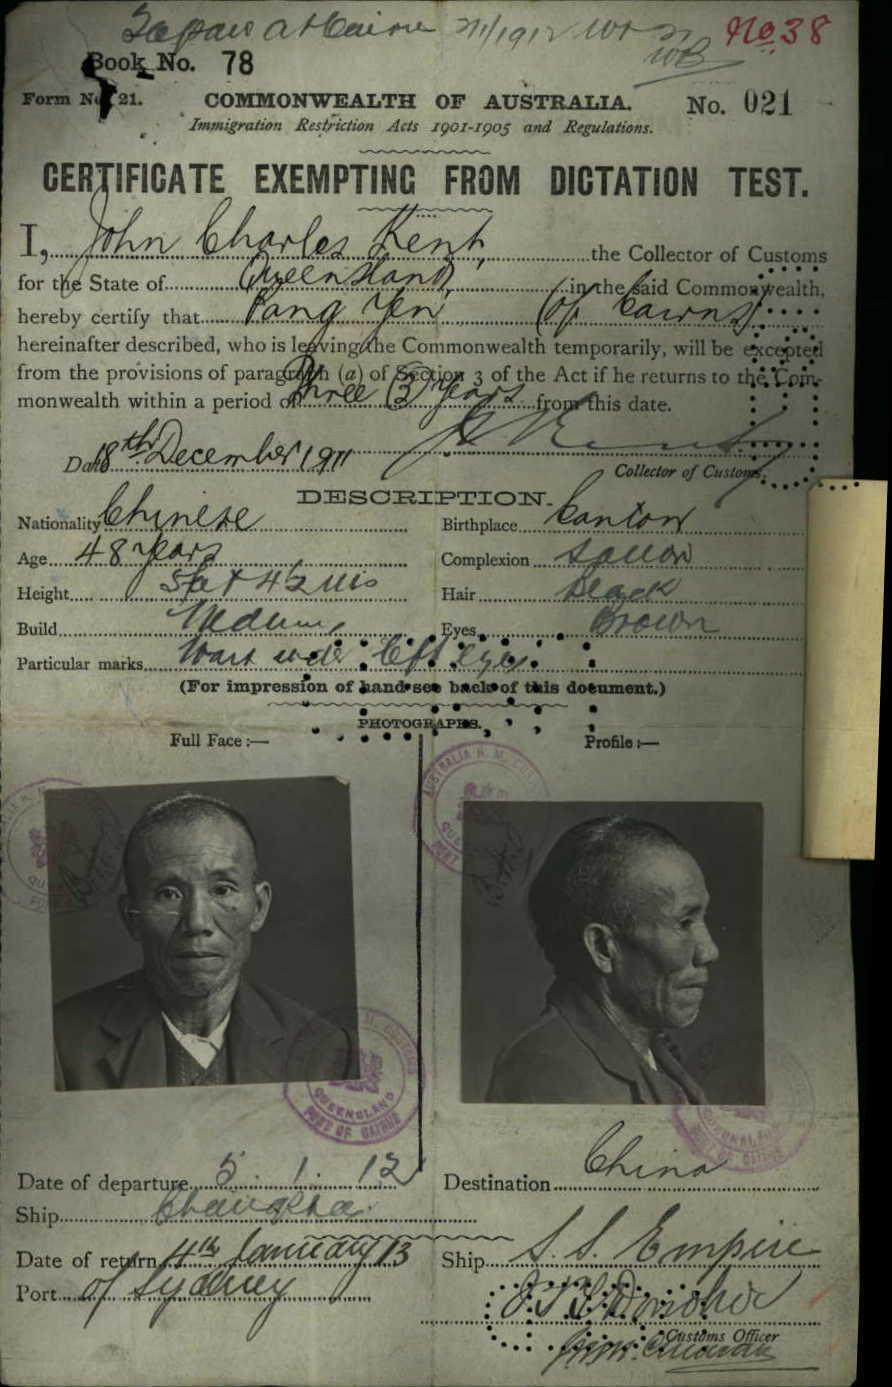 No. 38
Book No. 78
Form No. 21. COMMONWEALTH OF AUSTRALIA. No. 021
Immigration Restriction Acts 1901-1905 and Regulations.
CERTIFICATE EXEMPTING FROM DICTATION TEST.
I, John Charles Kent, the Collector of Customs
for the State of Queensland, in the said Commonwealth,
hereby certify that Pang Yen (of Cairns)
hereinafter described, who is leaving the Commonwealth temporarily, will be excepted
from the provisions of paragraph (a) of Section 3 of the Act if he returns to the Com-
monwealth within a period of Three (3) Years from this date.
Date 18th December 1911
Collector of Customs.
DESCRIPTION.
Nationality Chinese Birthplace Canton
Age 48 Years Complexion Sallow
Height 5 ft 4½ ins Hair Black
Build Medium Eyes Brown
Particular marks Wart under left eye.
(For impression of hand see back of this document.)
PHOTOGRAPHS.
Full Face :— Profile :—
QUEENSLAND
PORT OF CAIRNS
Date of departure 5. 1. 12 Destination China
Ship Changsha
Date of return 4th January 13 Ship S. S. Empire
Port of Sydney
Customs Officer